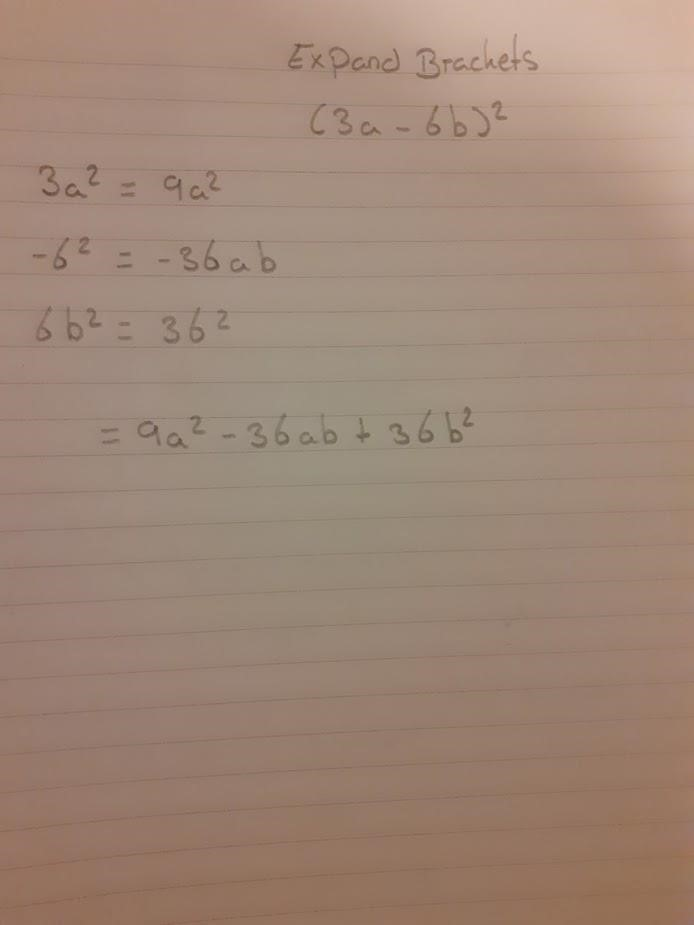 Expand Brackets
(3a - 6b)²
3a² = 9a²
-6² = -36ab
6b² = 36²
= 9a² - 36ab + 36b²